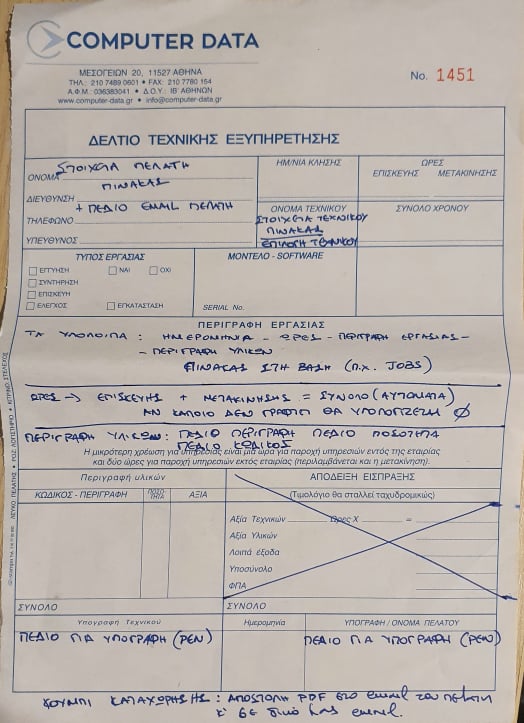 COMPUTER DATA
ΜΕΣΟΓΕΙΩΝ 20, 11527 ΑΘΗΝΑ
ΤΗΛ.: 210 7489 0601 • FAX: 210 7780 154
Α.Φ.Μ.: 036383041 • Δ.Ο.Υ.: ΙΒ' ΑΘΗΝΩΝ
www.computer-data.gr • info@computer-data.gr
No. 1451
ΔΕΛΤΙΟ ΤΕΧΝΙΚΗΣ ΕΞΥΠΗΡΕΤΗΣΗΣ
ΣΤΟΙΧΕΙΑ ΠΕΛΑΤΗ
ΟΝΟΜΑ
ΠΙΝΑΚΑΣ
ΔΙΕΥΘΥΝΣΗ
+ ΠΕΔΙΟ EMAIL ΠΕΛΑΤΗ
ΤΗΛΕΦΩΝΟ
ΥΠΕΥΘΥΝΟΣ
ΗΜ/ΝΙΑ ΚΛΗΣΗΣ
ΩΡΕΣ
ΕΠΙΣΚΕΥΗΣ ΜΕΤΑΚΙΝΗΣΗΣ
ΟΝΟΜΑ ΤΕΧΝΙΚΟΥ
ΣΤΟΙΧΕΙΑ ΤΕΧΝΙΚΟΥ
ΠΙΝΑΚΑΣ
ΕΠΙΛΟΓΗ ΤΕΧΝΙΚΟΥ
ΣΥΝΟΛΟ ΧΡΟΝΟΥ
ΤΥΠΟΣ ΕΡΓΑΣΙΑΣ
ΕΓΓΥΗΣΗ ΝΑΙ ΟΧΙ
ΣΥΝΤΗΡΗΣΗ
ΕΠΙΣΚΕΥΗ
ΕΛΕΓΧΟΣ ΕΓΚΑΤΑΣΤΑΣΗ
ΜΟΝΤΕΛΟ - SOFTWARE
SERIAL No.
ΠΕΡΙΓΡΑΦΗ ΕΡΓΑΣΙΑΣ
ΤΑ ΥΠΟΛΟΙΠΑ : ΗΜΕΡΟΜΗΝΙΑ - ΩΡΕΣ - ΠΕΡΙΓΡΑΦΗ ΕΡΓΑΣΙΑΣ -
- ΠΕΡΙΓΡΑΦΗ ΥΛΙΚΩΝ
ΠΙΝΑΚΑΣ ΣΤΗ ΒΑΣΗ (Π.Χ. JOBS)
ΩΡΕΣ → ΕΠΙΣΚΕΥΗΣ + ΜΕΤΑΚΙΝΗΣΗΣ = ΣΥΝΟΛΟ (ΑΥΤΟΜΑΤΑ)
ΑΝ ΚΑΠΟΙΟ ΔΕΝ ΓΡΑΦΤΗ ΘΑ ΥΠΟΛΟΓΙΖΕΤΑΙ Ø
ΠΕΡΙΓΡΑΦΗ ΥΛΙΚΩΝ: ΠΕΔΙΟ ΠΕΡΙΓΡΑΦΗ ΠΕΔΙΟ ΠΟΣΟΤΗΤΑ
ΠΕΔΙΟ ΚΩΔΙΚΟΣ
Η μικρότερη χρέωση για υπηρεσίες είναι μια ώρα για παροχή υπηρεσιών εντός της εταιρίας
και δύο ώρες για παροχή υπηρεσιών εκτός της εταιρίας (περιλαμβάνεται και η μετακίνηση).
Περιγραφή υλικών
ΚΩΔΙΚΟΣ - ΠΕΡΙΓΡΑΦΗ ΠΟΣΟΤΗΤΑ ΑΞΙΑ
ΑΠΟΔΕΙΞΗ ΕΙΣΠΡΑΞΗΣ
(Τιμολόγιο θα σταλλεί ταχυδρομικώς)
Αξία Τεχνικών Ώρες Χ =
Αξία Υλικών
Λοιπά έξοδα
Υποσύνολο
ΦΠΑ
ΣΥΝΟΛΟ ΣΥΝΟΛΟ
Υπογραφή Τεχνικού Ημερομηνία ΥΠΟΓΡΑΦΗ / ΟΝΟΜΑ ΠΕΛΑΤΟΥ
ΠΕΔΙΟ ΓΙΑ ΥΠΟΓΡΑΦΗ (PEN) ΠΕΔΙΟ ΓΙΑ ΥΠΟΓΡΑΦΗ (PEN)
ΚΟΥΜΠΙ ΚΑΤΑΧΩΡΗΣΗΣ : ΑΠΟΣΤΟΛΗ PDF στο email του πελάτη
κ' σε δικό μας email